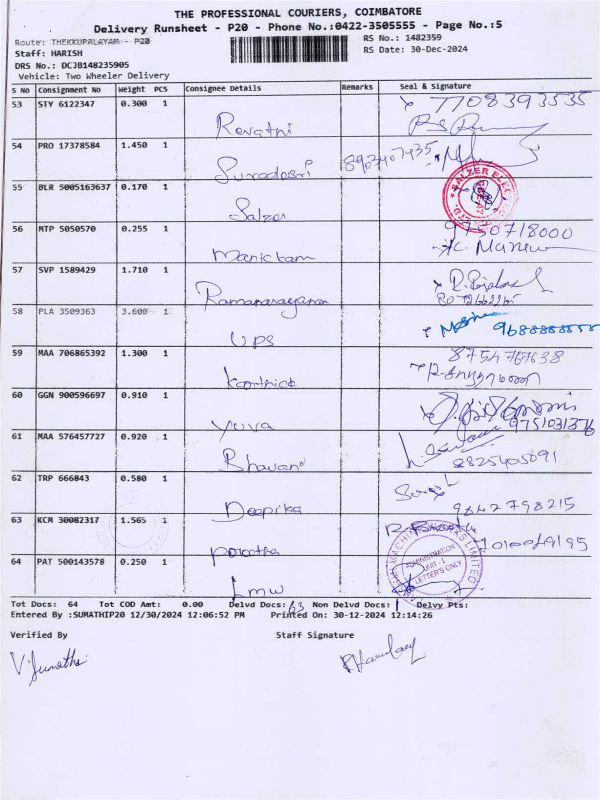 THE PROFESSIONAL COURIERS, COIMBATORE
Delivery Runsheet - P20 - Phone No.:0422-3505555 - Page No.:5
Route: THEKKUPALAYAM - P20
RS No.: 1482359
Staff: HARISH
RS Date: 30-Dec-2024
DRS No.: DCJB148235905
Vehicle: Two Wheeler Delivery
S No Consignment No Weight PCS Consignee Details Remarks Seal & Signature
53 STY 6122347 0.300 1
Revathi
7708393535
54 PRO 17378584 1.450 1
8903407435
55 BLR 5005163637 0.170 1
Salzer
SALZER
56 MTP 5050570 0.255 1
Manickam
9750718000
57 SVP 1589429 1.710 1
Ramanarayanan
58 PLA 3509363 3.600 1
UPS
59 MAA 706865392 1.300 1
Karthick
8754767638
60 GGN 900596697 0.910 1
Yuva
9751031376
61 MAA 576457727 0.920 1
Bhavani
8825405891
62 TRP 666843 0.580 1
Deepika
9842798215
63 KCM 30082317 1.565 1
64 PAT 500143578 0.250 1
Lmw
ADMINISTRATION
UNIT - I
LETTER'S ONLY
Tot Docs: 64 Tot COD Amt: 0.00 Delvd Docs: 63 Non Delvd Docs: 1 Delvy Pts:
Entered By :SUMATHIP20 12/30/2024 12:06:52 PM Printed On: 30-12-2024 12:14:26
Verified By Staff Signature
V. Sumathi